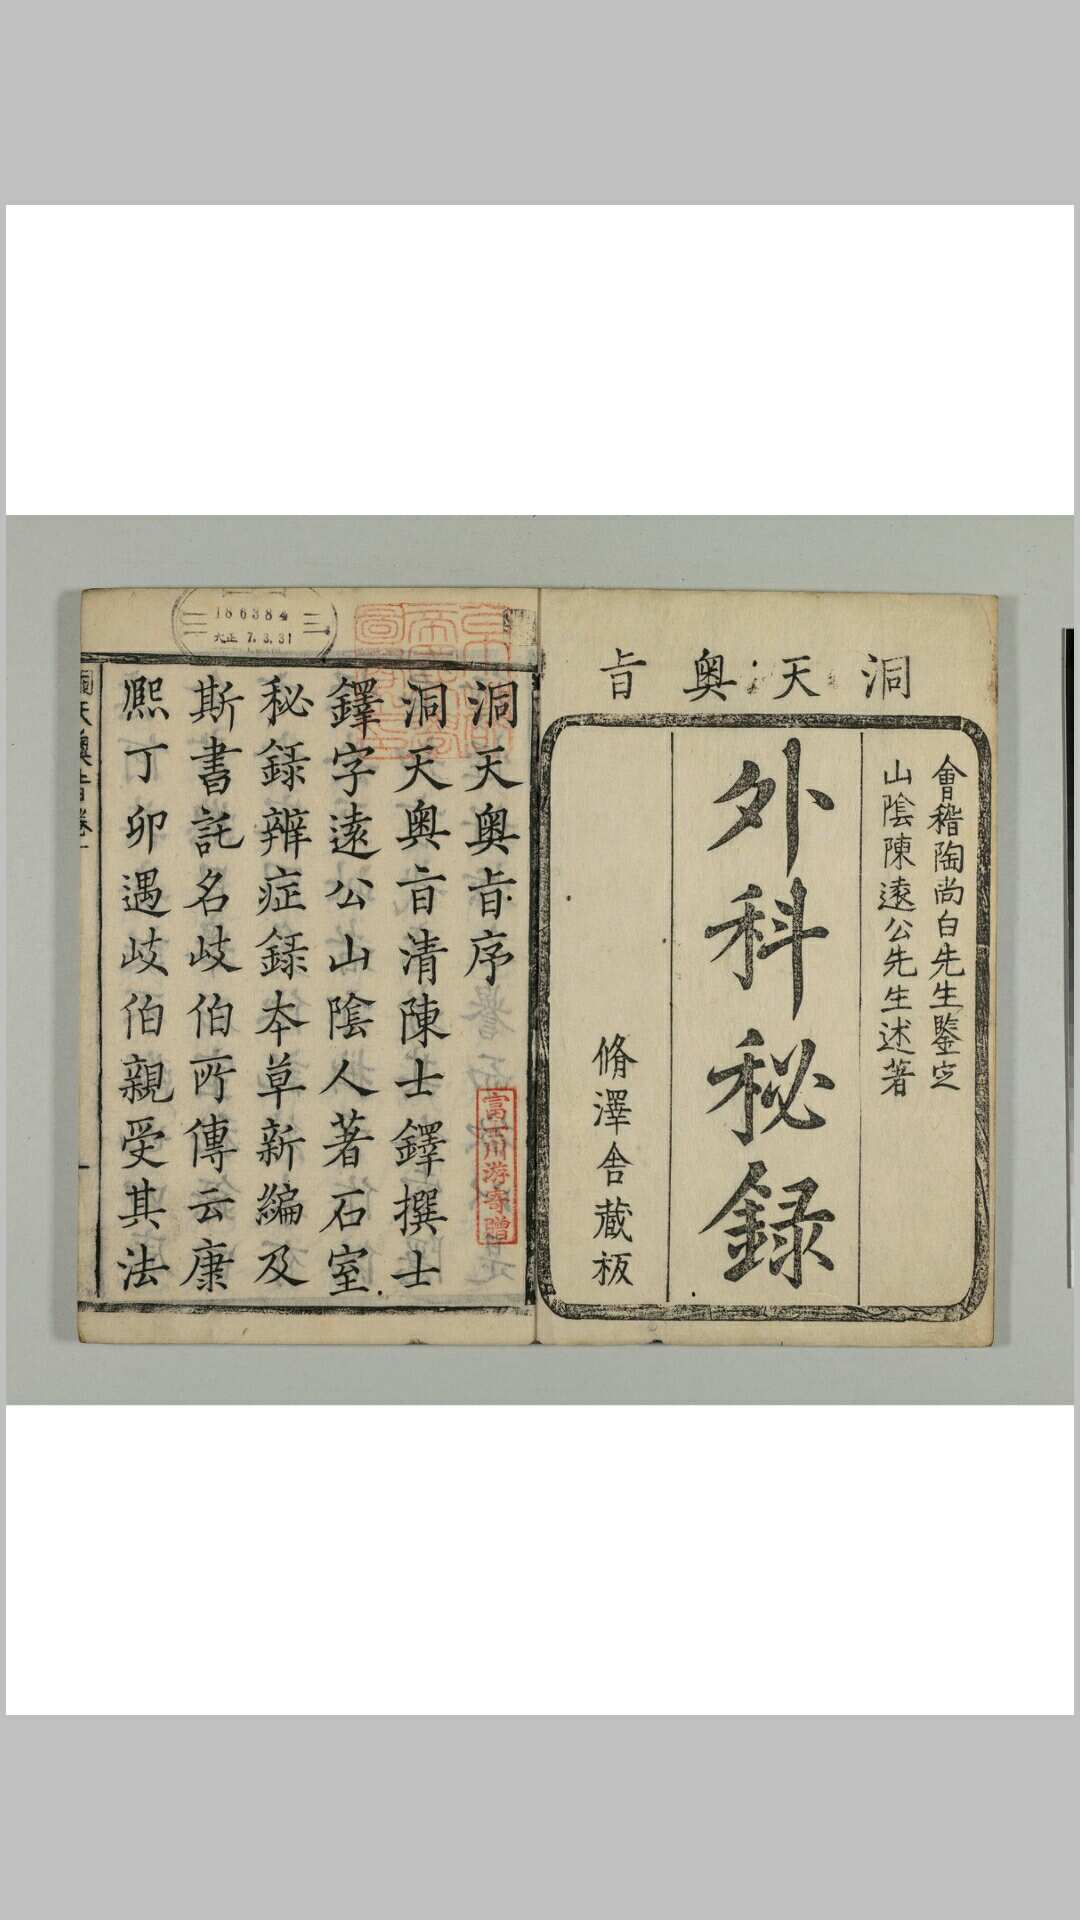 洞天奥㫖
會稽陶尚白先生鑒定
山陰陳遠公先生述著
外科秘録
脩澤舎藏板
洞天奥㫖序
洞天奥㫖清陳士鐸撰士
鐸字遠公山陰人著石室
秘録辨症録本草新編及
斯書託名岐伯所傳云康
熈丁卯遇岐伯親受其法
富士川游寄贈
186384
大正 7.3.31